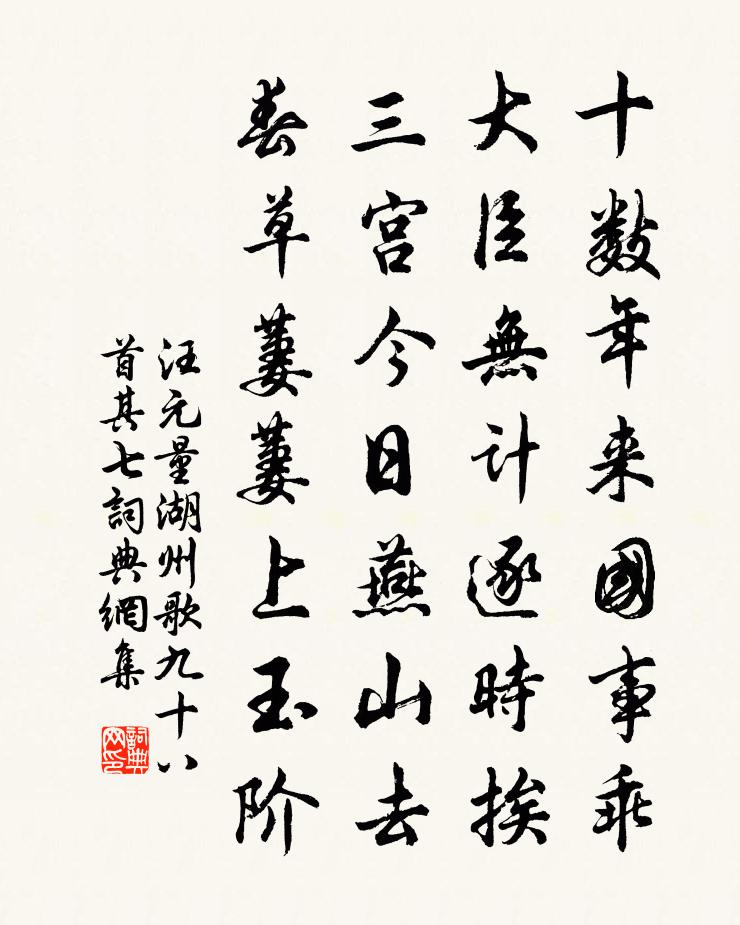 十数年来國事乖
大臣無計逐時挨
三宫今日燕山去
春草萋萋上玉阶
汪元量湖州歌九十八
首其七詞典網集
詞典
网印